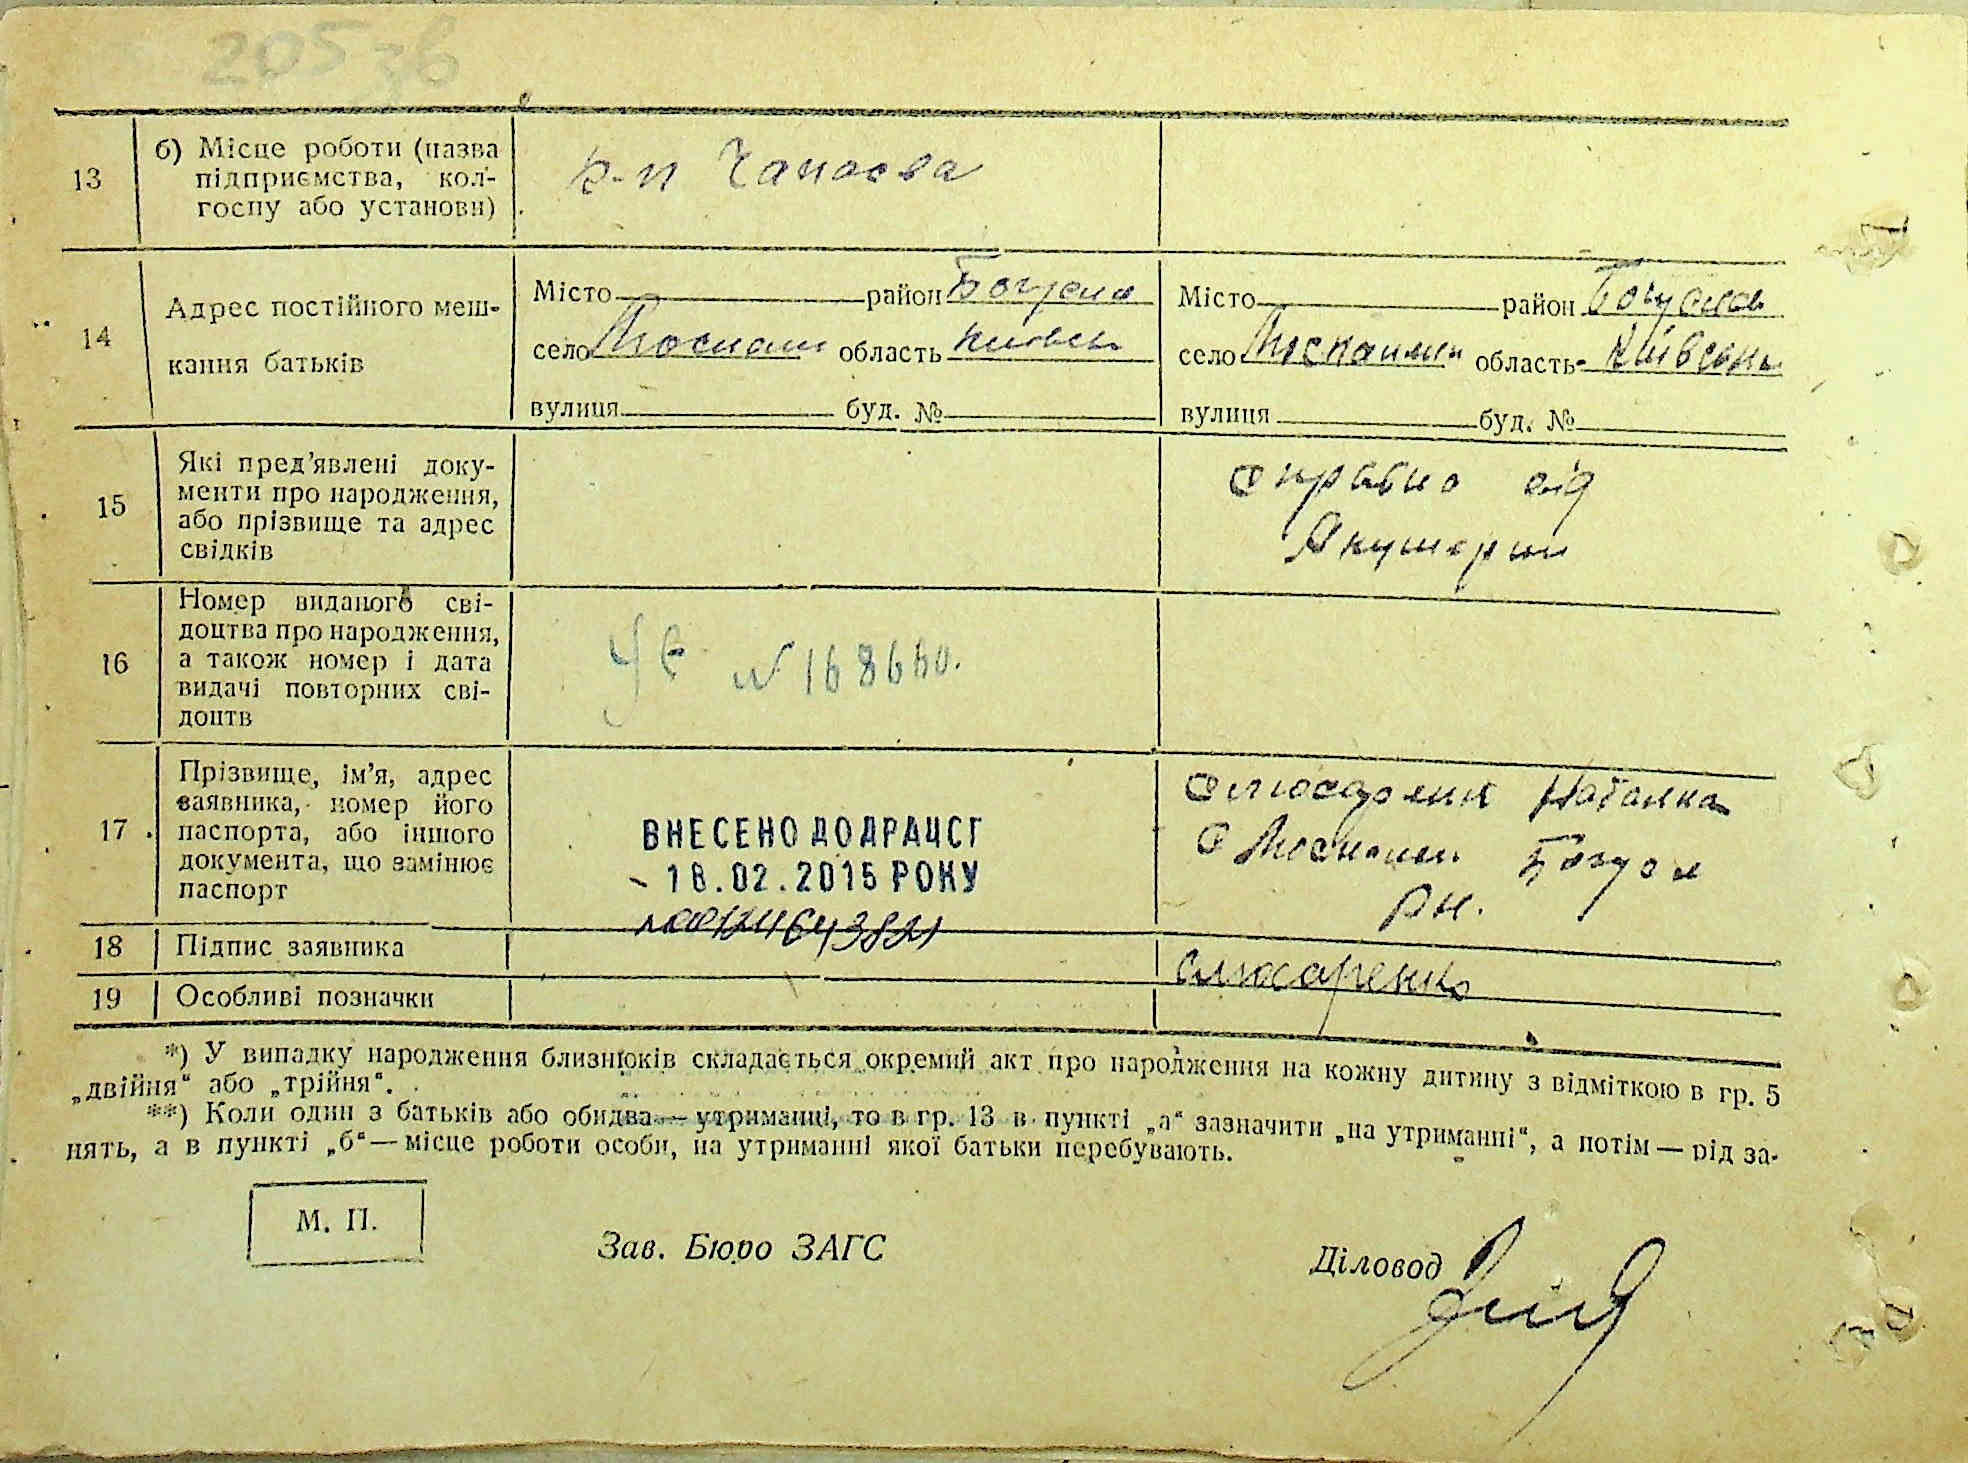 205 зв
13
б) Місце роботи (назва
підприємства, кол-
госпу або установи)
к-п Чапаєва
14
Адрес постійного меш-
кання батьків
Місто район Богуслав
село область Київськ
вулиця буд. №
Місто район Богуслав
село область Київськ
вулиця буд. №
15
Які пред'явлені доку-
менти про народження,
або прізвище та адрес
свідків
Справка від
Якушерки
16
Номер виданого сві-
доцтва про народження,
а також номер і дата
видачі повторних сві-
доцтв
№ 168660.
17
Прізвище, ім'я, адрес
заявника, номер його
паспорта, або іншого
документа, що замінює
паспорт
ВНЕСЕНО ДО ДРАЦСГ
- 18.02.2015 РОКУ
Слюсаренк Наталка
с Богусл
рн.
18
Підпис заявника
Слюсаренко
19
Особливі позначки
*) У випадку народження близнюків складається окремий акт про народження на кожну дитину з відміткою в гр. 5
„двійня“ або „трійня“.
**) Коли один з батьків або обидва — утриманці, то в гр. 13 в пункті „а“ зазначити „на утриманні“, а потім — рід за-
нять, а в пункті „б“ — місце роботи особи, на утриманні якої батьки перебувають.
М. П.
Зав. Бюро ЗАГС
Діловод